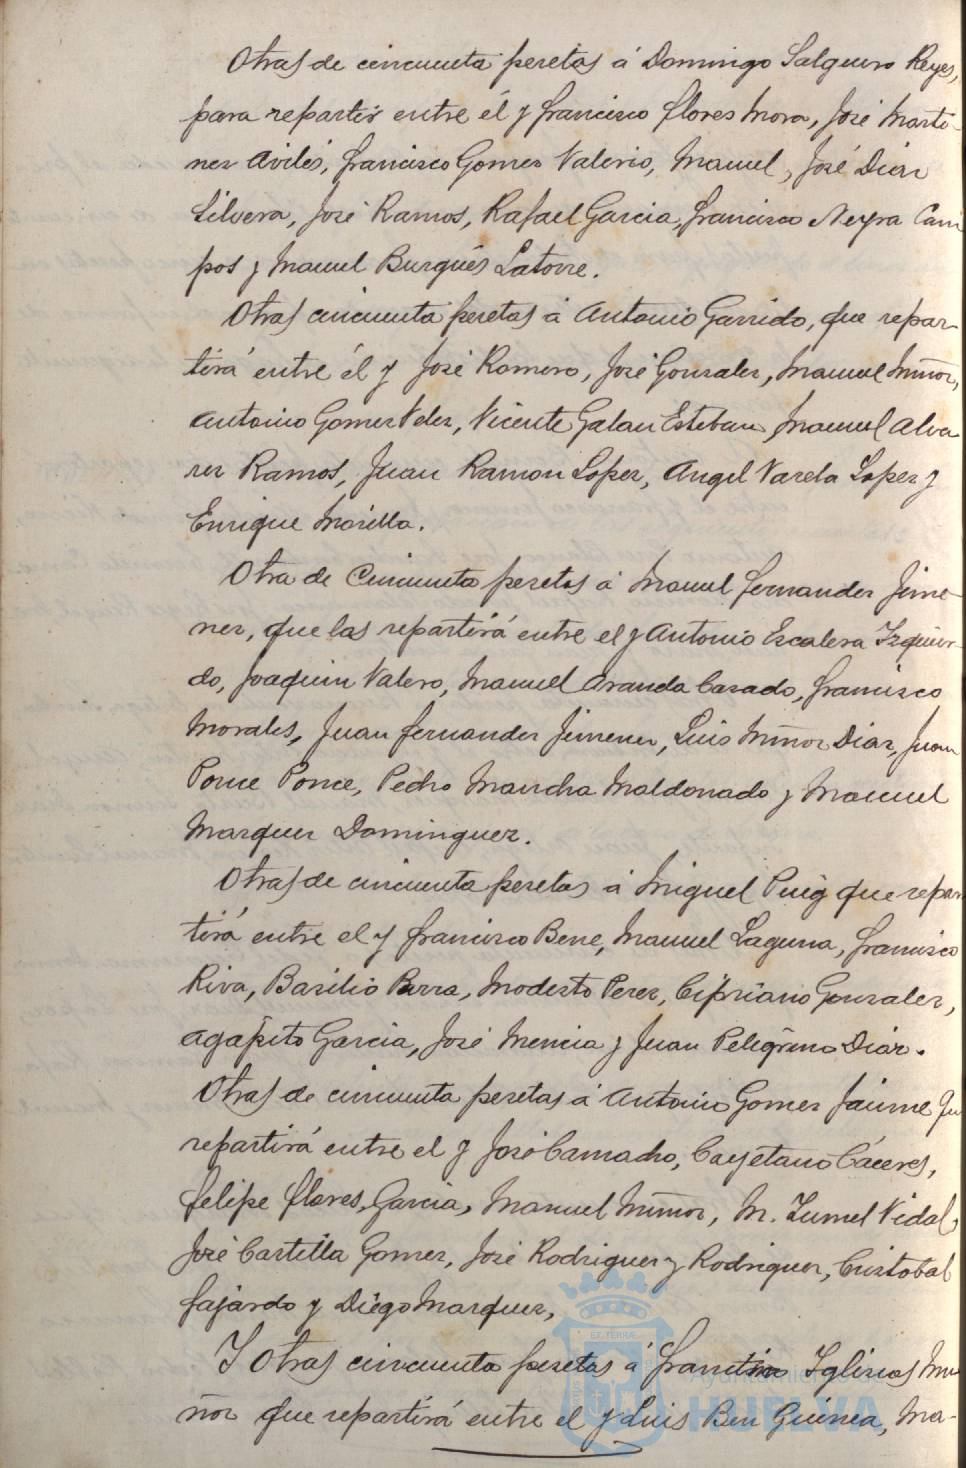 Otras de cincuenta pesetas á Domingo Salguero Reyes,
para repartir entre él y Francisco Flores Mora, José Marti-
nez Avilés, Francisco Gomez Valerio, Manuel, José Diaz
Silvera, José Ramos, Rafael Garcia, Francisco Neyra Cam
pos y Manuel Burgués Latorre.
Otras cincuenta pesetas á Antonio Garrido, que repar-
tirá entre él y José Romero, José Gonzalez, Manuel Muñoz,
Antonio Gomez Velez, Vicente Galan Esteban, Manuel Alva
rez Ramos, Juan Ramon Lopez, Angel Varela Lopez y
Enrique Morilla.
Otra de Cincuenta pesetas á Manuel Fernandez Jime-
nez, que las repartirá entre el y Antonio Escalera Izquier-
do, Joaquin Valero, Manuel Aranda Casado, Francisco
Morales, Juan Fernandez Jimenez, Luis Muñoz Diaz, Juan
Ponce Ponce, Pedro Mancha Maldonado y Manuel
Marquez Dominguez.
Otras de cincuenta pesetas á Miguel Puig que repar
tirá entre el y Francisco Bene, Manuel Laguna, Francisco
Riva, Basilio Parra, Modesto Perez, Cipriano Gonzalez,
Agapito Garcia, José Mencia y Juan Peligrino Diaz.
Otras de cincuenta pesetas á Antonio Gomez Jaime qu
repartirá entre el y José Camacho, Cayetano Cáceres,
Felipe Flores, Garcia, Manuel Muñoz, M. Zumel Vidal,
José Castilla Gomez, José Rodriguez y Rodriguez, Cristobal
Fajardo y Diego Marquez,
Y Otras cincuenta pesetas á Iglesias Mu
ñoz que repartirá entre el y Luis Ben Guinea, Ma-
Ayuntamiento de
HUELVA